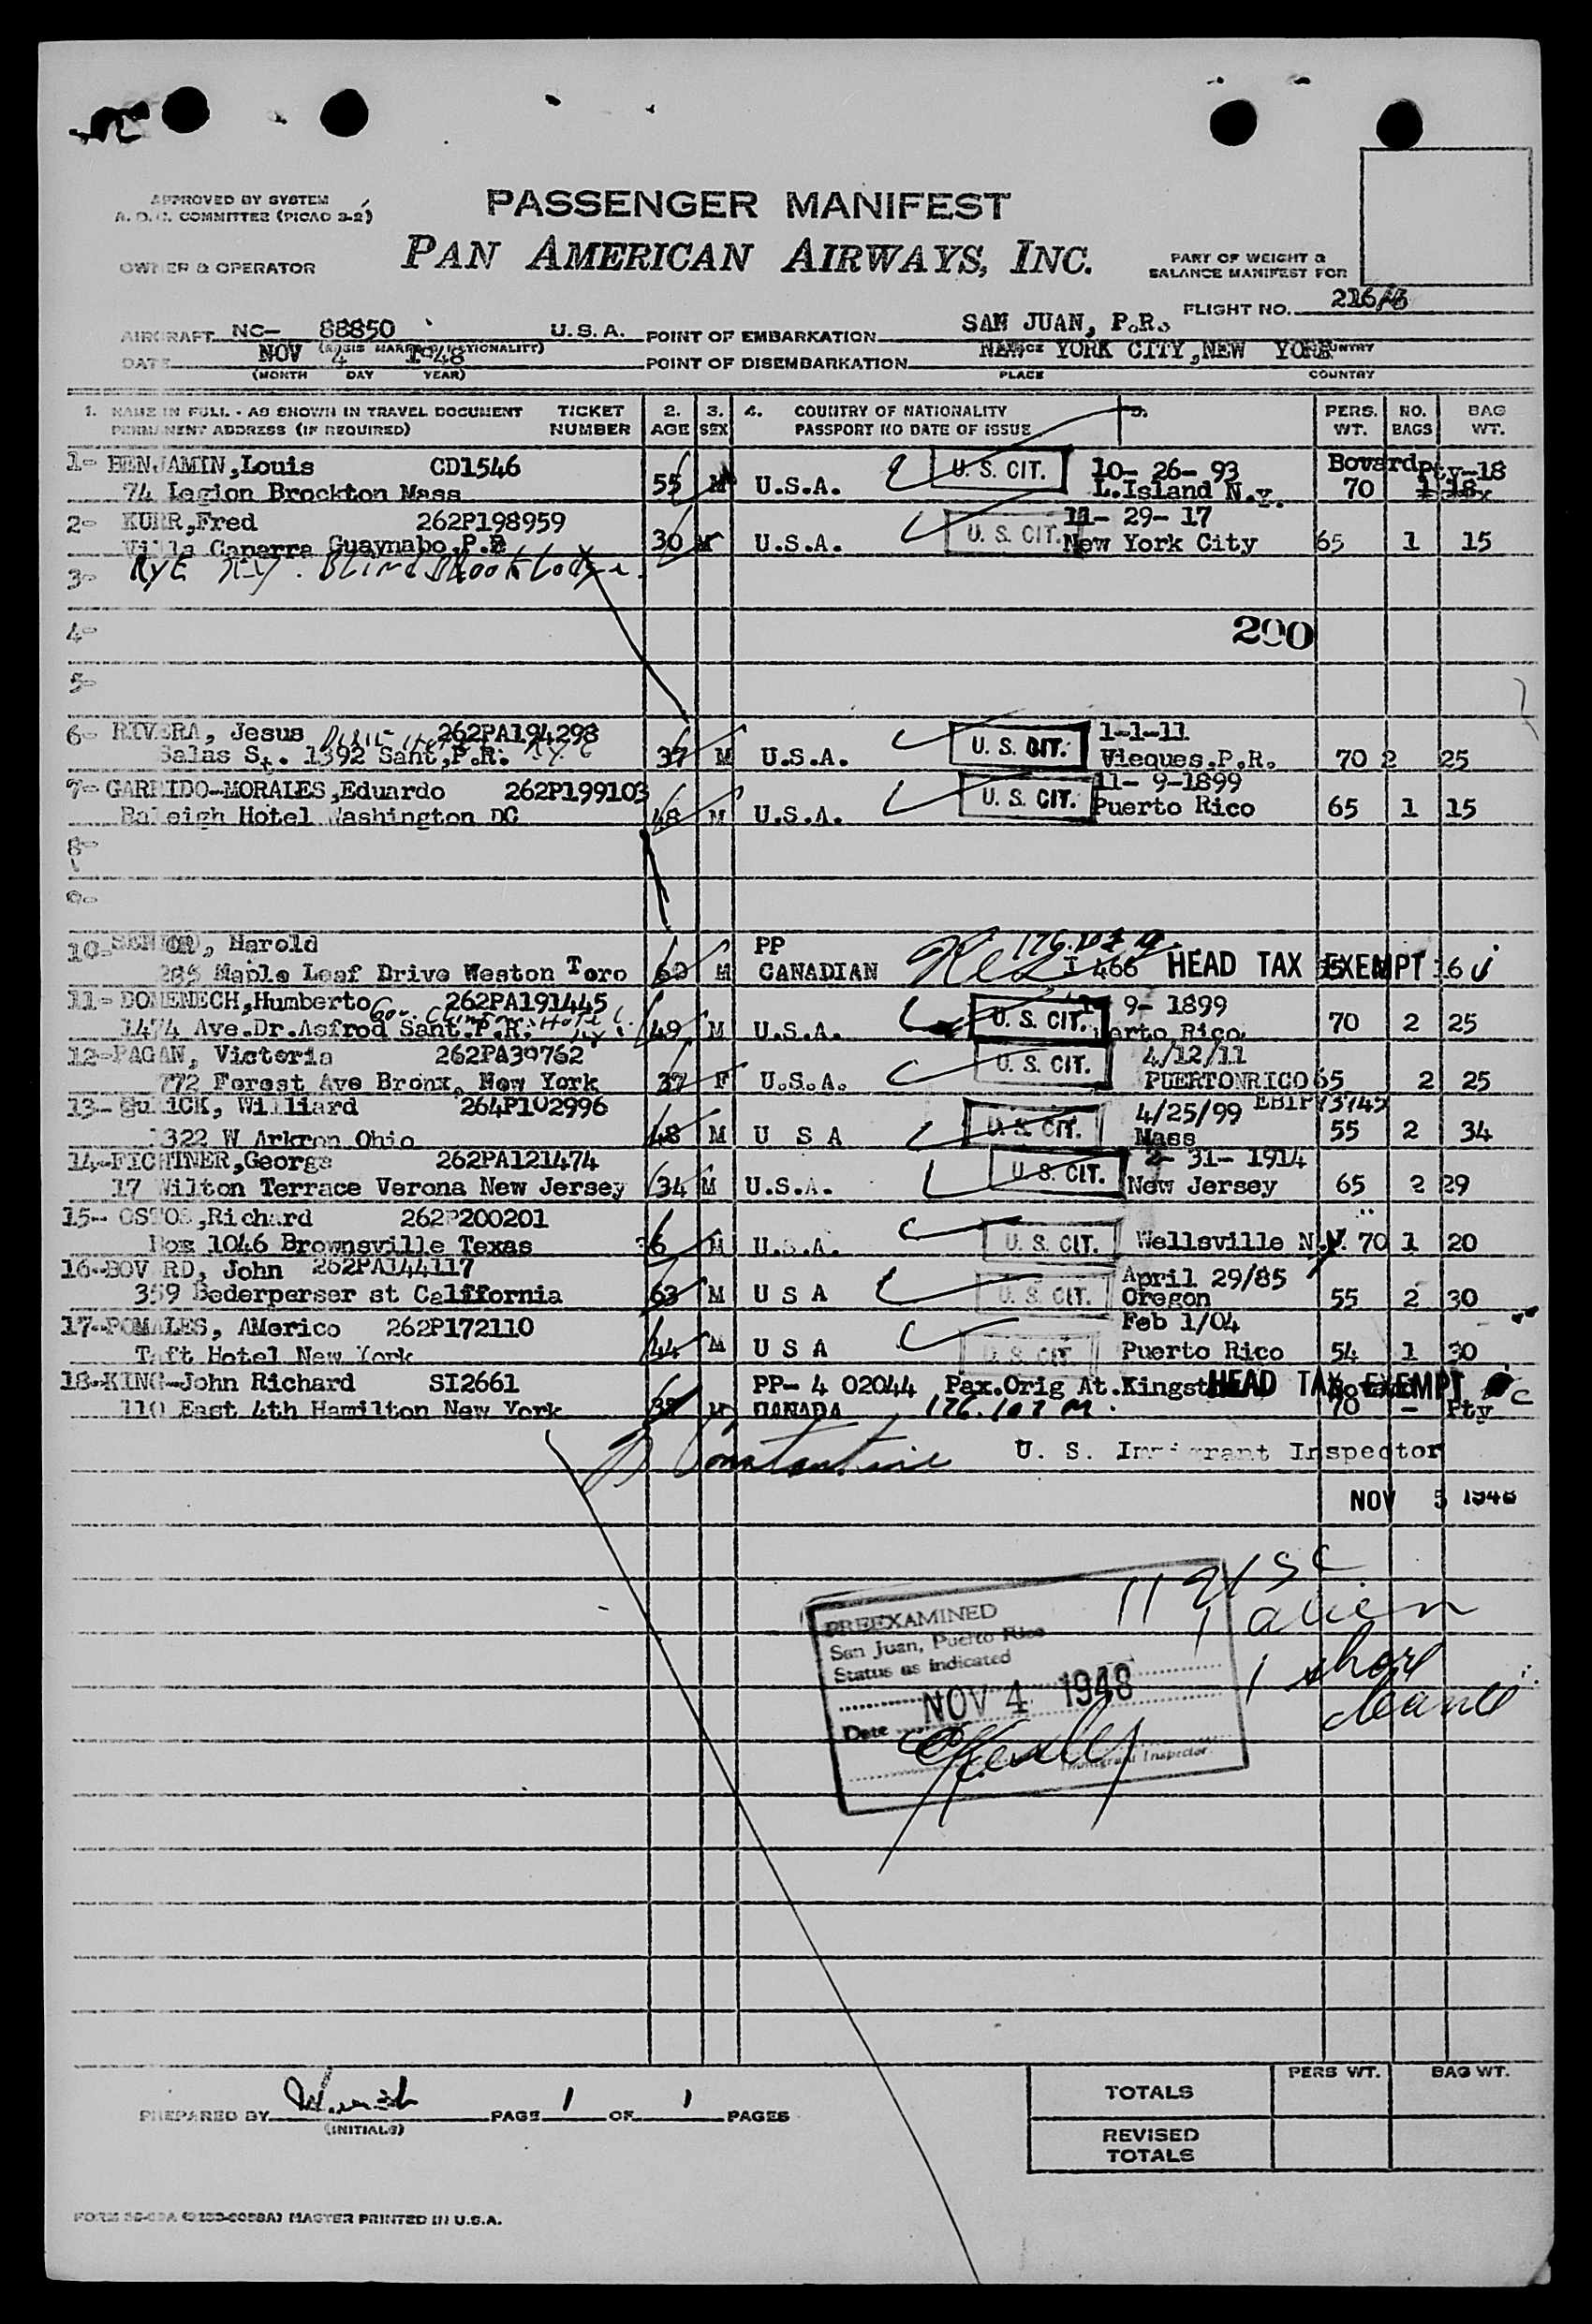 APPROVED BY SYSTEM
A. D. C. COMMITTEE (PICAO 3-2)
PASSENGER MANIFEST
PAN AMERICAN AIRWAYS, INC.
OWNER & OPERATOR
PART OF WEIGHT &
BALANCE MANIFEST FOR
FLIGHT NO. 216/3
AIRCRAFT NC- 88850 U.S.A. POINT OF EMBARKATION SAN JUAN, P.R.
DATE NOV 4 1948 POINT OF DISEMBARKATION NEW YORK CITY, NEW YORK
(MONTH DAY YEAR) PLACE COUNTRY
1. NAME IN FULL - AS SHOWN IN TRAVEL DOCUMENT TICKET 2. 3. 4. COUNTRY OF NATIONALITY 5. PERS. NO. BAG
PERMANENT ADDRESS (IF REQUIRED) NUMBER AGE SEX PASSPORT NO DATE OF ISSUE WT. BAGS WT.
1- BENJAMIN,Louis CD1546 U. S. CIT. 10- 26- 93 BovardPty-18
74 Legion Brockton Mass 55 M U.S.A. L.Island N.y. 70 1 18
2- KURR,Fred 262P198959 11- 29- 17
Villa Caparra Guaynabo,P.R 30 M U.S.A. U. S. CIT. New York City 65 1 15
3- Rye N.Y. Blind Brook Lodge
4- 290
5-
6- RIVERA, Jesus 262PA194298 1-1-11
Salas St. 1392 Sant,P.R. 37 M U.S.A. U. S. CIT. Vieques.P.R. 70 2 25
7- GARRIDO-MORALES,Eduardo 262P199103 11- 9-1899
Raleigh Hotel Washington DC 48 M U.S.A. U. S. CIT. Puerto Rico 65 1 15
8-
9-
10- Harold PP 176.107
285 Maple Leaf Drive Weston Toro 60 M CANADIAN I 466 HEAD TAX EXEMPT 16
11- DOMENECH,Humberto 262PA191445 9- 1899
1474 Ave.Dr.Asfrod Sant.P.R. 49 M U.S.A. U. S. CIT. erto Rico. 70 2 25
12-PAGAN, Victoria 262PA30762 4/12/11
772 Forest Ave Bronx, New York 37 F U.S.A. U. S. CIT. PUERTONRICO 65 2 25
13- Williard 264P102996 4/25/99 EBIPY3745
1322 W Arkron Ohio 48 M U S A U. S. CIT. Mass 55 2 34
14-FICHTNER,George 262PA121474 2- 31- 1914
17 Wilton Terrace Verona New Jersey 34 M U.S.A. U. S. CIT. New Jersey 65 2 29
15- OSTOS,Richard 262P200201
Box 1046 Brownsville Texas 36 M U.S.A. U. S. CIT. Wellsville N.Y. 70 1 20
16-BOVARD, John 262PA144117 April 29/85
359 Bederperser st California 63 M U S A U. S. CIT. Oregon 55 2 30
17-POMALES, AMerico 262P172110 Feb 1/04
Taft Hotel New York 44 M U S A U. S. CIT. Puerto Rico 54 1 30
18-KING-John Richard SI2661 PP- 4 02044 Pax.Orig At.Kingst HEAD TAX EXEMPT
110 East 4th Hamilton New York 38 M CANADA 176.107 M. 70 - Pty
Constantine U. S. Immigrant Inspector
NOV 5 1948
PREEXAMINED
San Juan, Puerto Rico
Status as indicated
Date NOV 4 1948
Immigrant Inspector
11 USC
1 alien
1 short
PREPARED BY PAGE 1 OF 1 PAGES
(INITIALS)
TOTALS PERS WT. BAG WT.
REVISED
TOTALS
MASTER PRINTED IN U.S.A.